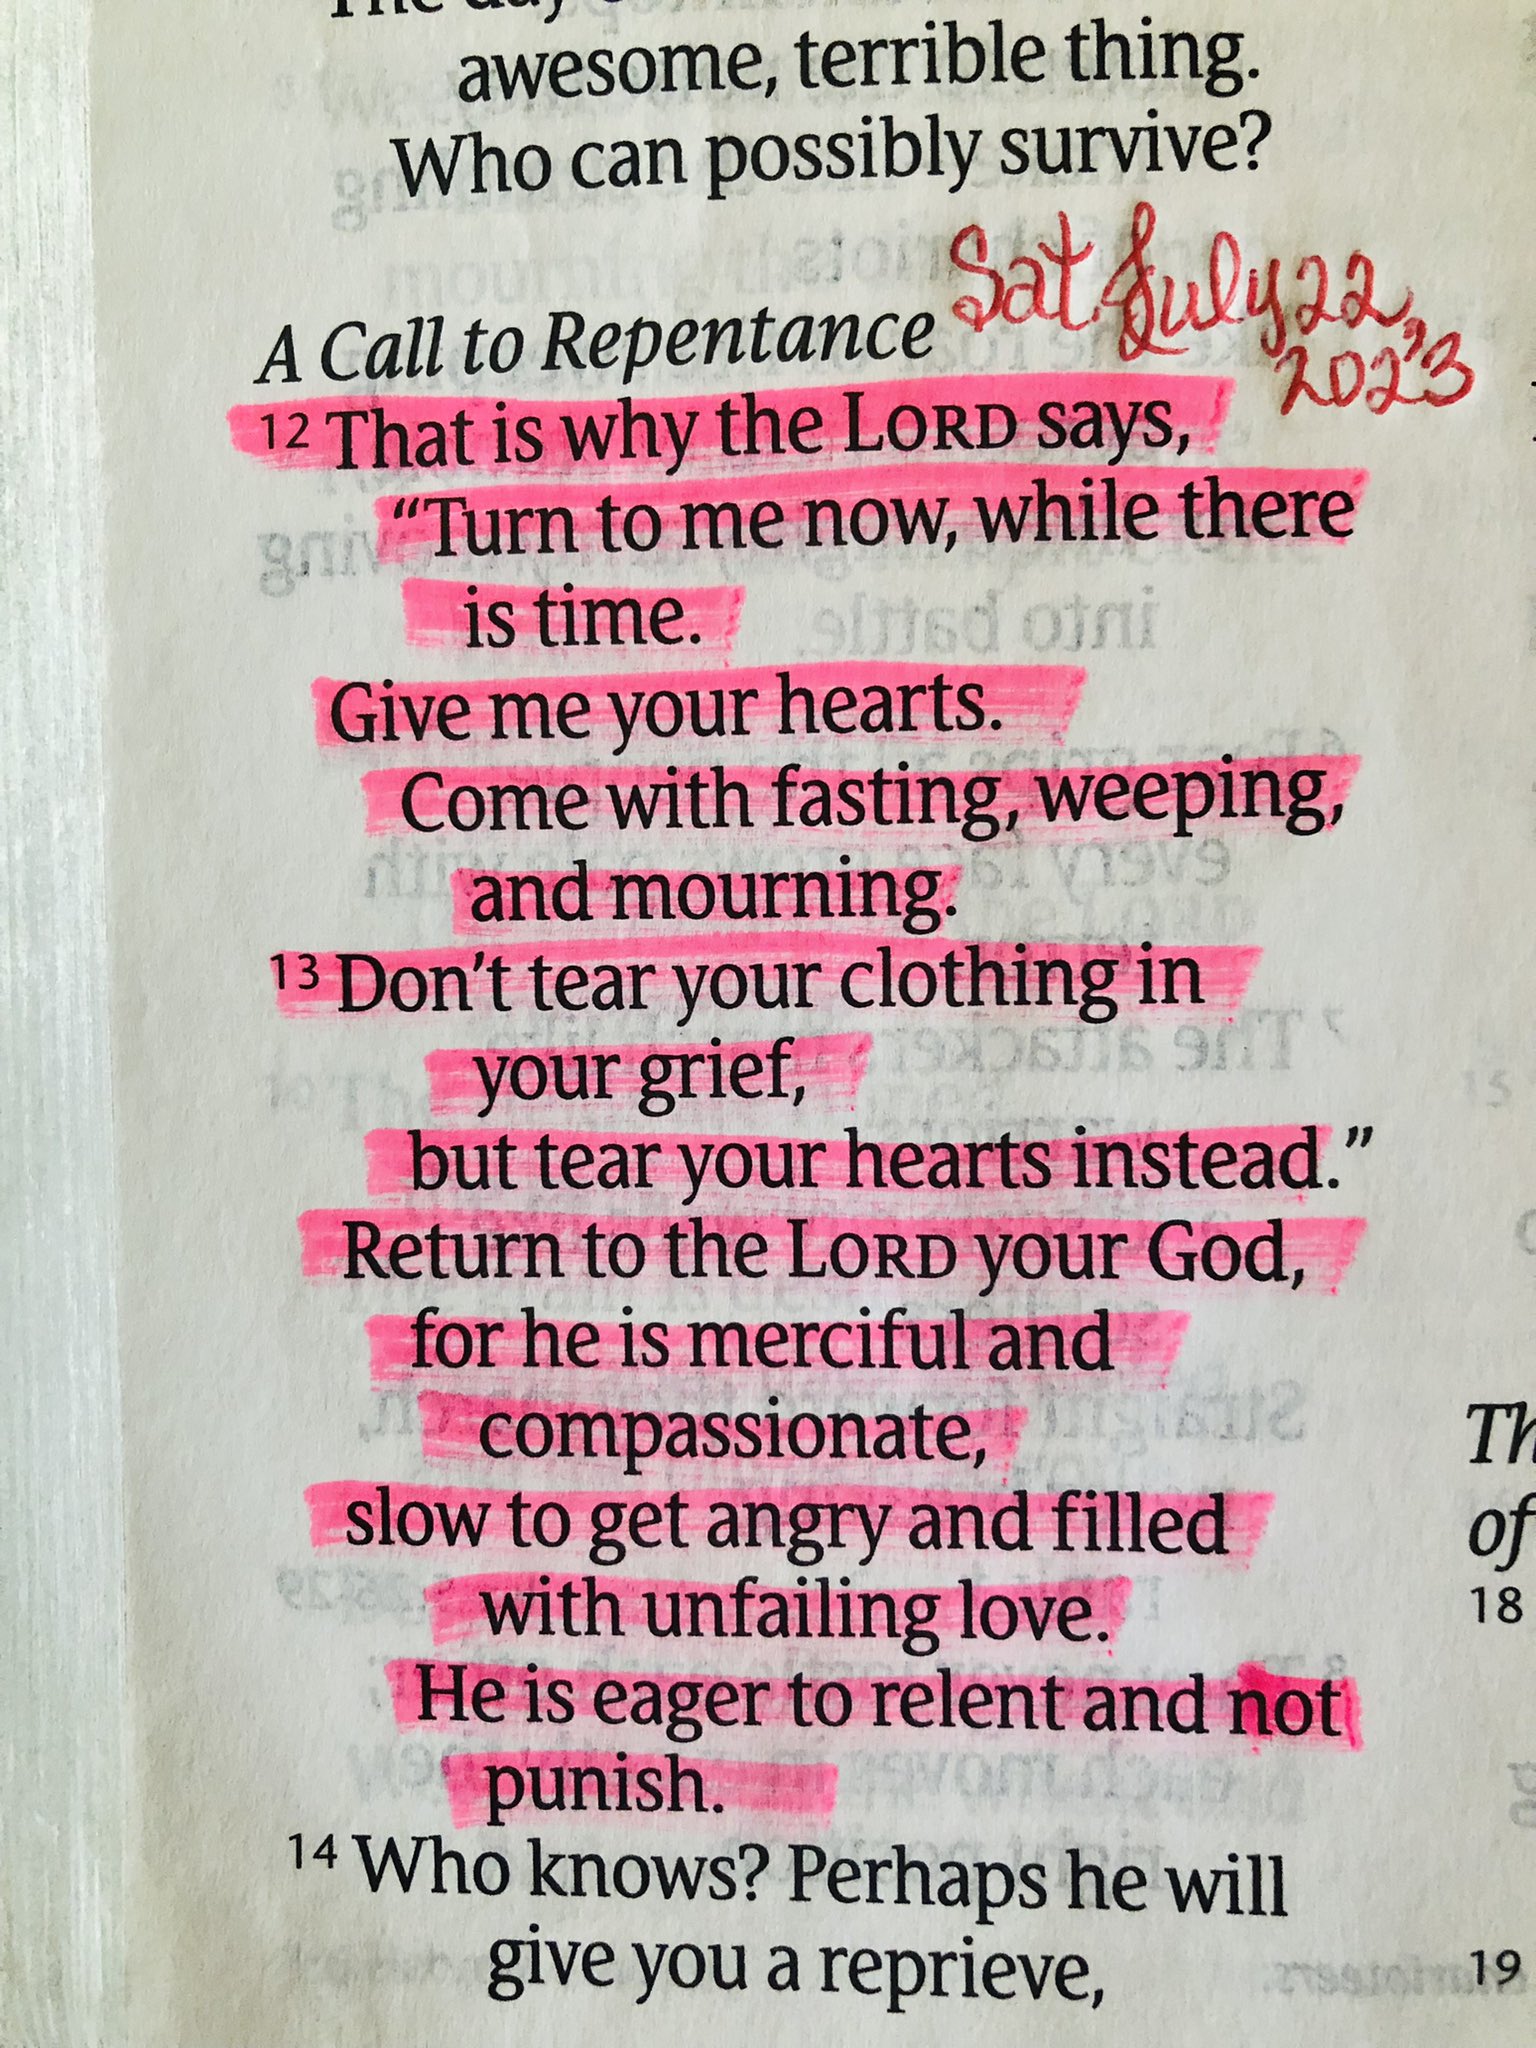 The day
awesome, terrible thing.
Who can possibly survive?
Sat. July 22,
2023
A Call to Repentance
12 That is why the LORD says,
“Turn to me now, while there
is time.
Give me your hearts.
Come with fasting, weeping,
and mourning.
13 Don’t tear your clothing in
your grief,
but tear your hearts instead.”
Return to the LORD your God,
for he is merciful and
compassionate,
slow to get angry and filled
with unfailing love.
He is eager to relent and not
punish.
14 Who knows? Perhaps he will
give you a reprieve,
15
Th
of
18
19